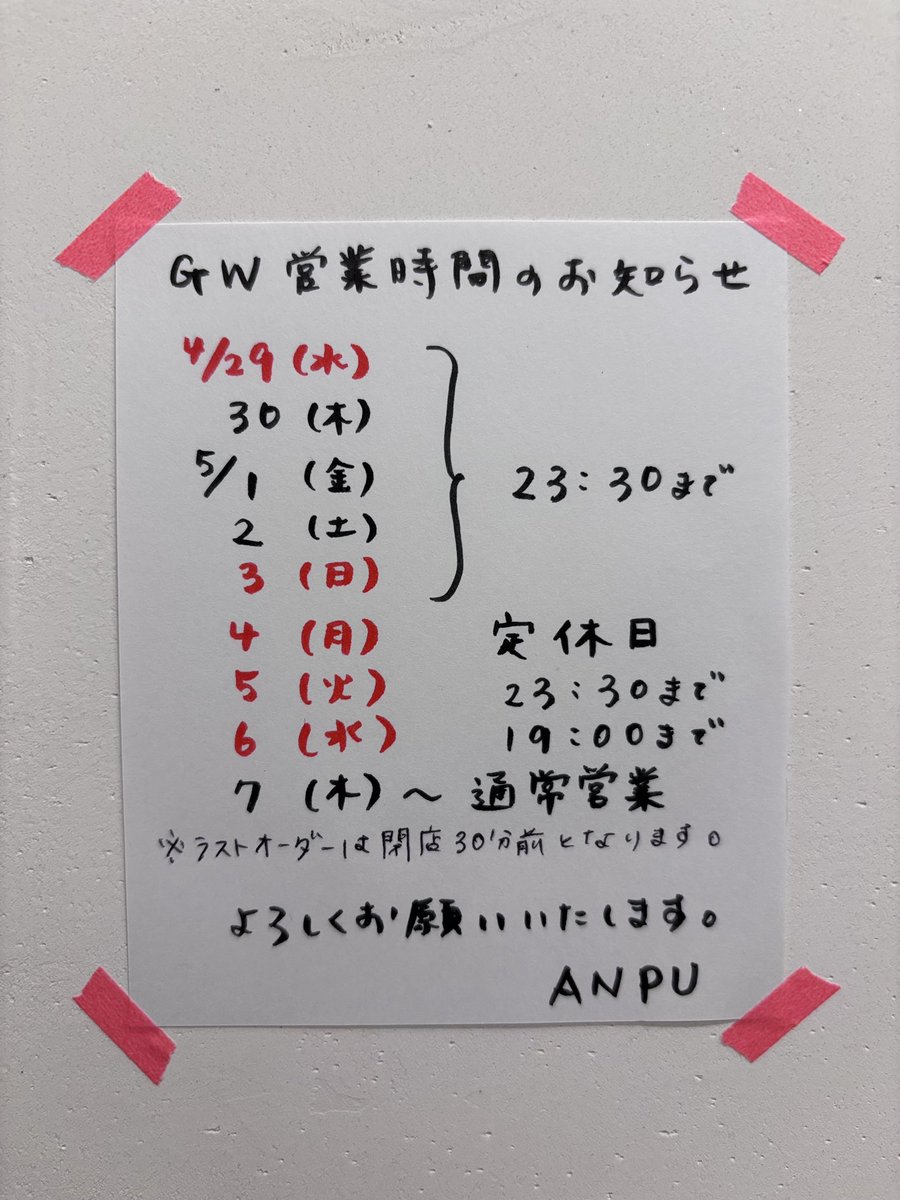 GW 営業時間のお知らせ
4/29 (水)
30 (木)
5/1 (金)
2 (土)
3 (日)
23:30まで
4 (月) 定休日
5 (火) 23:30まで
6 (水) 19:00まで
7 (木)〜通常営業
※ラストオーダーは閉店30分前となります。
よろしくお願いいたします。
ANPU